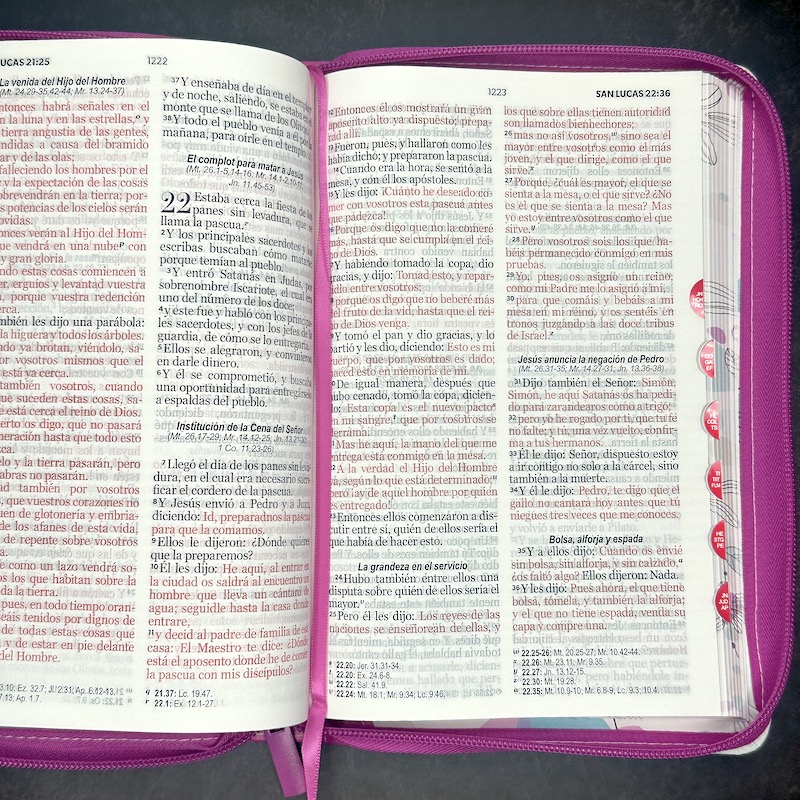 LUCAS 21:25
1222
La venida del Hijo del Hombre
(Mt. 24.29-35,42-44; Mr. 13.24-37)
habrá señales en el
la luna y en las estrellas,
tierra angustia de las gentes,
a causa del bramido
mar y de las olas;
los hombres por el
y la expectación de las cosas
sobrevendrán en la tierra; por-
potencias de los cielos serán
verán al Hijo del Hom-
vendrá en una nube
y gran gloria.
estas cosas comiencen a
erguíos y levantad vuestra
porque vuestra redención
cerca.
les dijo una parábola:
la higuera y todos los árboles.
ya brotan, viéndolo, sa-
vosotros mismos que el
está ya cerca.
también vosotros, cuando
que suceden estas cosas, sa-
está cerca el reino de Dios.
os digo, que no pasará
hasta que todo esto
y la tierra pasarán, pero
palabras no pasarán.
también por vosotros
que vuestros corazones no
de glotonería y embria-
de los afanes de esta vida,
de repente sobre vosotros
como un lazo vendrá so-
los que habitan sobre la
de la tierra.
pues, en todo tiempo oran-
seáis tenidos por dignos de
de todas estas cosas que
y de estar en pie delante
del Hombre.
37Y enseñaba de día en el templo;
y de noche, saliendo, se estaba en el
monte que se llama de los Olivos.
38Y todo el pueblo venía a él por la
mañana, para oírle en el templo.
El complot para matar a Jesús
(Mt. 26.1-5,14-16; Mr. 14.1-2,10-11;
Jn. 11.45-53)
22 Estaba cerca la fiesta de los
panes sin levadura, que se
llama la pascua.
2Y los principales sacerdotes y los
escribas buscaban cómo matarle;
porque temían al pueblo.
3Y entró Satanás en Judas, por
sobrenombre Iscariote, el cual era
uno del número de los doce;
4y éste fue y habló con los principa-
les sacerdotes, y con los jefes de la
guardia, de cómo se lo entregaría.
5Ellos se alegraron, y convinieron
en darle dinero.
6Y él se comprometió, y buscaba
una oportunidad para entregárselo
a espaldas del pueblo.
Institución de la Cena del Señor
(Mt. 26.17-29; Mr. 14.12-25; Jn. 13.21-30;
1 Co. 11.23-26)
7Llegó el día de los panes sin leva-
dura, en el cual era necesario sacri-
ficar el cordero de la pascua.
8Y Jesús envió a Pedro y a Juan,
diciendo: Id, preparadnos la pascua
para que la comamos.
9Ellos le dijeron: ¿Dónde quieres
que la preparemos?
10Él les dijo: He aquí, al entrar en
la ciudad os saldrá al encuentro un
hombre que lleva un cántaro de
agua; seguidle hasta la casa donde
entrare,
11y decid al padre de familia de esa
casa: El Maestro te dice: ¿Dónde
está el aposento donde he de comer
la pascua con mis discípulos?
21.37: Lc. 19.47.
22.1: Ex. 12.1-27.
1223
SAN LUCAS 22:36
12Entonces él os mostrará un gran
aposento alto ya dispuesto; prepa-
rad allí.
13Fueron, pues, y hallaron como les
había dicho; y prepararon la pascua.
14Cuando era la hora, se sentó a la
mesa, y con él los apóstoles.
15Y les dijo: ¡Cuánto he deseado co-
mer con vosotros esta pascua antes
que padezca!
16Porque os digo que no la comeré
más, hasta que se cumpla en el rei-
no de Dios.
17Y habiendo tomado la copa, dio
gracias, y dijo: Tomad esto, y repar-
tidlo entre vosotros;
18porque os digo que no beberé más
del fruto de la vid, hasta que el rei-
no de Dios venga.
19Y tomó el pan y dio gracias, y lo
partió y les dio, diciendo: Esto es mi
cuerpo, que por vosotros es dado;
haced esto en memoria de mí.
20De igual manera, después que
hubo cenado, tomó la copa, dicien-
do: Esta copa es el nuevo pacto
en mi sangre, que por vosotros se
derrama.
21Mas he aquí, la mano del que me
entrega está conmigo en la mesa.
22A la verdad el Hijo del Hombre
va, según lo que está determinado;
pero ¡ay de aquel hombre por quien
es entregado!
23Entonces ellos comenzaron a dis-
cutir entre sí, quién de ellos sería el
que había de hacer esto.
La grandeza en el servicio
24Hubo también entre ellos una
disputa sobre quién de ellos sería el
mayor.
25Pero él les dijo: Los reyes de las
naciones se enseñorean de ellas, y
22.20: Jer. 31.31-34.
22.22: Sal. 41.9.
22.24: Mt. 18.1; Mr. 9.34; Lc. 9.46.
los que sobre ellas tienen autoridad
son llamados bienhechores;
26mas no así vosotros, sino sea el
mayor entre vosotros como el más
joven, y el que dirige, como el que
sirve.
27Porque, ¿cuál es mayor, el que se
sienta a la mesa, o el que sirve? ¿No
es el que se sienta a la mesa? Mas
yo estoy entre vosotros como el que
sirve.
28Pero vosotros sois los que ha-
béis permanecido conmigo en mis
pruebas.
29Yo, pues, os asigno un reino,
como mi Padre me lo asignó a mí,
30para que comáis y bebáis a mi
mesa en mi reino, y os sentéis en
tronos juzgando a las doce tribus
de Israel.
Jesús anuncia la negación de Pedro
(Mt. 26.31-35; Mr. 14.27-31; Jn. 13.36-38)
31Dijo también el Señor: Simón,
Simón, he aquí Satanás os ha pedi-
do para zarandearos como a trigo;
32pero yo he rogado por ti, que tu fe
no falte; y tú, una vez vuelto, confir-
ma a tus hermanos.
33Él le dijo: Señor, dispuesto estoy
a ir contigo no sólo a la cárcel, sino
también a la muerte.
34Y él le dijo: Pedro, te digo que el
gallo no cantará hoy antes que tú
niegues tres veces que me conoces.
Bolsa, alforja y espada
35Y a ellos dijo: Cuando os envié
sin bolsa, sin alforja, y sin calzado,
¿os faltó algo? Ellos dijeron: Nada.
36Y les dijo: Pues ahora, el que tiene
bolsa, tómela, y también la alforja;
y el que no tiene espada, venda su
capa y compre una.
22.25-26: Mt. 20.25-27; Mr. 10.42-44.
22.26: Mt. 23.11; Mr. 9.35.
22.27: Jn. 13.12-15.
22.30: Mt. 19.28.
22.35: Mt. 10.9-10; Mr. 6.8-9; Lc. 9.3; 10.4.